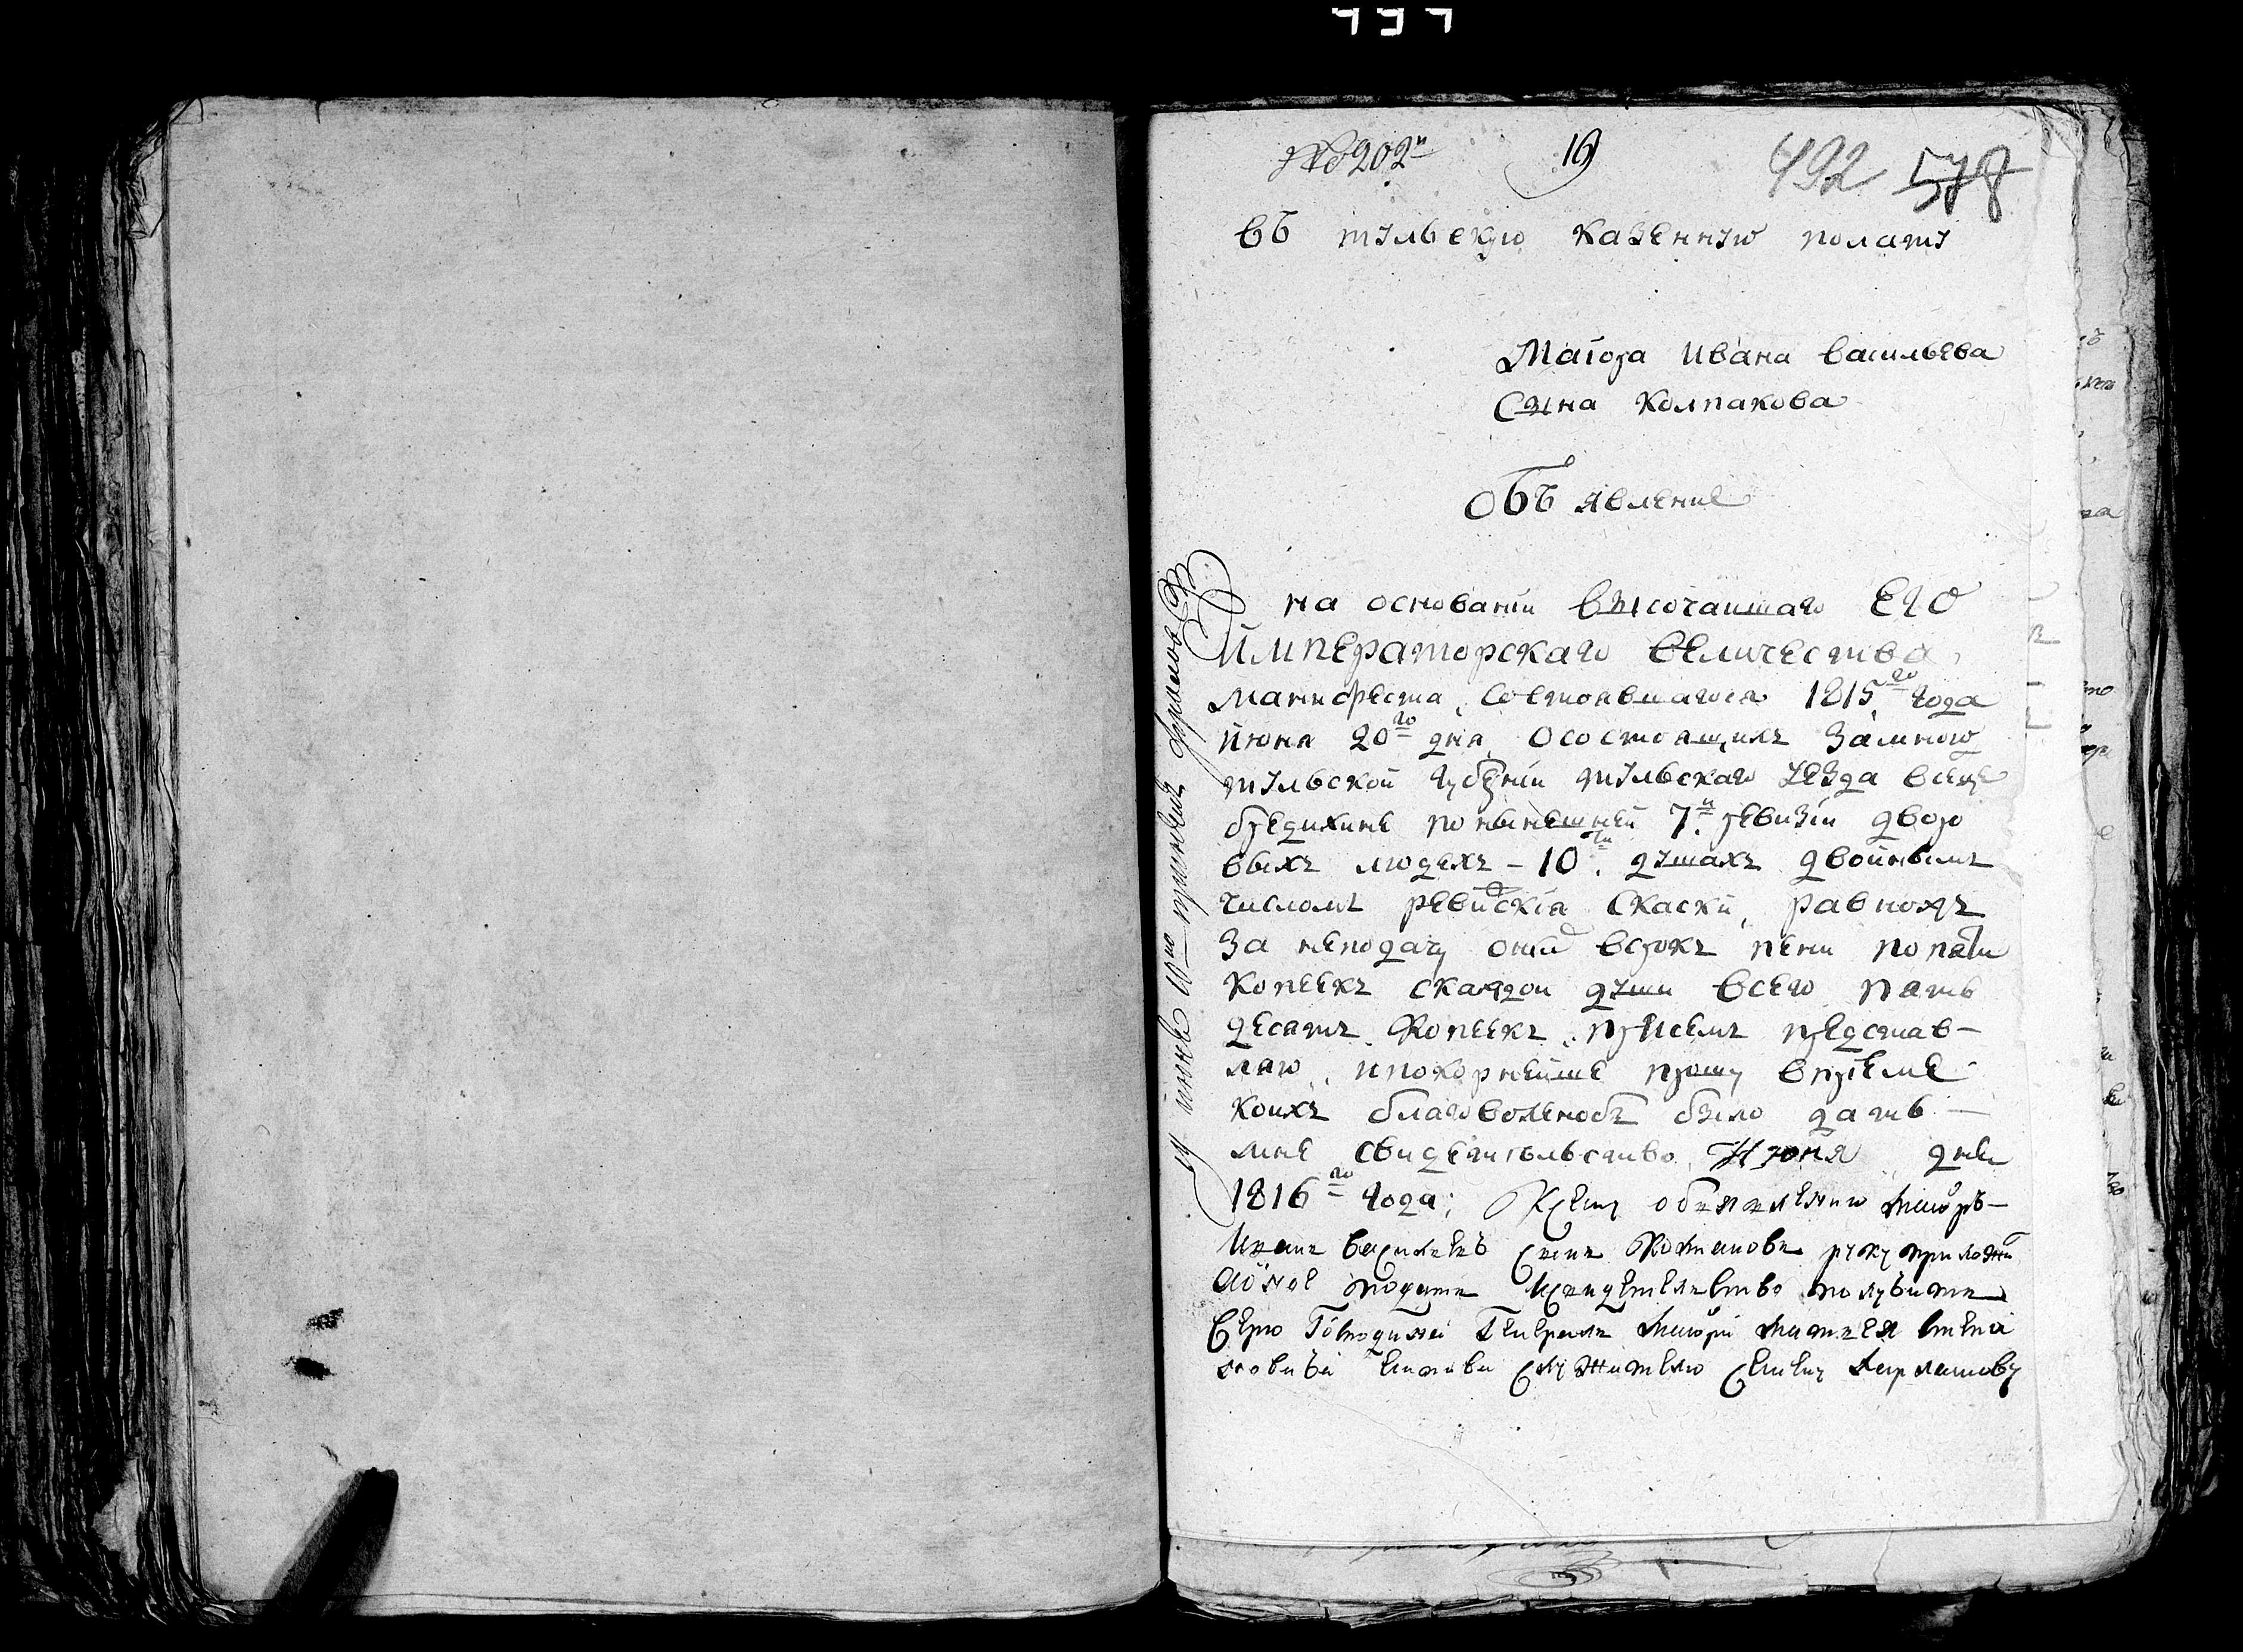 № 202й 19 492 578
въ тульскую казенную полату
Маіора Ивана васильева
Сына Колпакова
Объявление
на основаніи высочаишаго ЕГО
ИМПЕРАТОРСКАГО ВЕЛИЧЕСТВА
манифеста, состоявшагося 1815го года
июня 20го дня, О состоящихъ замною
тульской губерніи тульскаго уезда всельце
бредихине по нынешней 7й ревизіи дворо
выхъ людехъ – 10ти душахъ двойнымъ
числомъ ревиские скаски, равножъ
за неподачу оныхъ всрокъ пени попяти
копеекъ скаждои души всего пять
десятъ копеекъ, присемъ представ–
ляю, ипокорнейше прошу вприеме
коихъ благоволенобъ было дать –
мне свидетельство, Июня дня
1816го года; Ксему обявлению маиоръ –
Иванъ Васильевъ сынъ Колпаковъ руку приложил
аоное подать Исвидетельство получить
верю Господина Генерала маиора
служителю семену